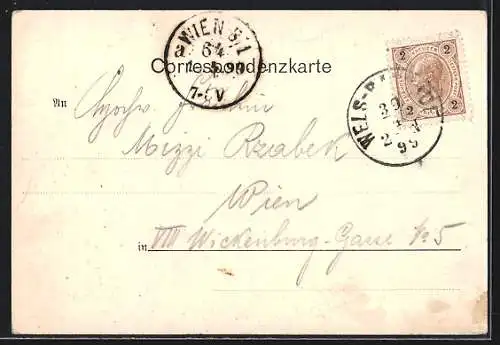 WIEN 8/1
a 64
99
7-8 V
Correspondenzkarte
2 2
2 2
WELS
99
An Hochw. Fräulein
Mizzi Rzabek
Wien
in VIII Wickenburg-Gasse No 5